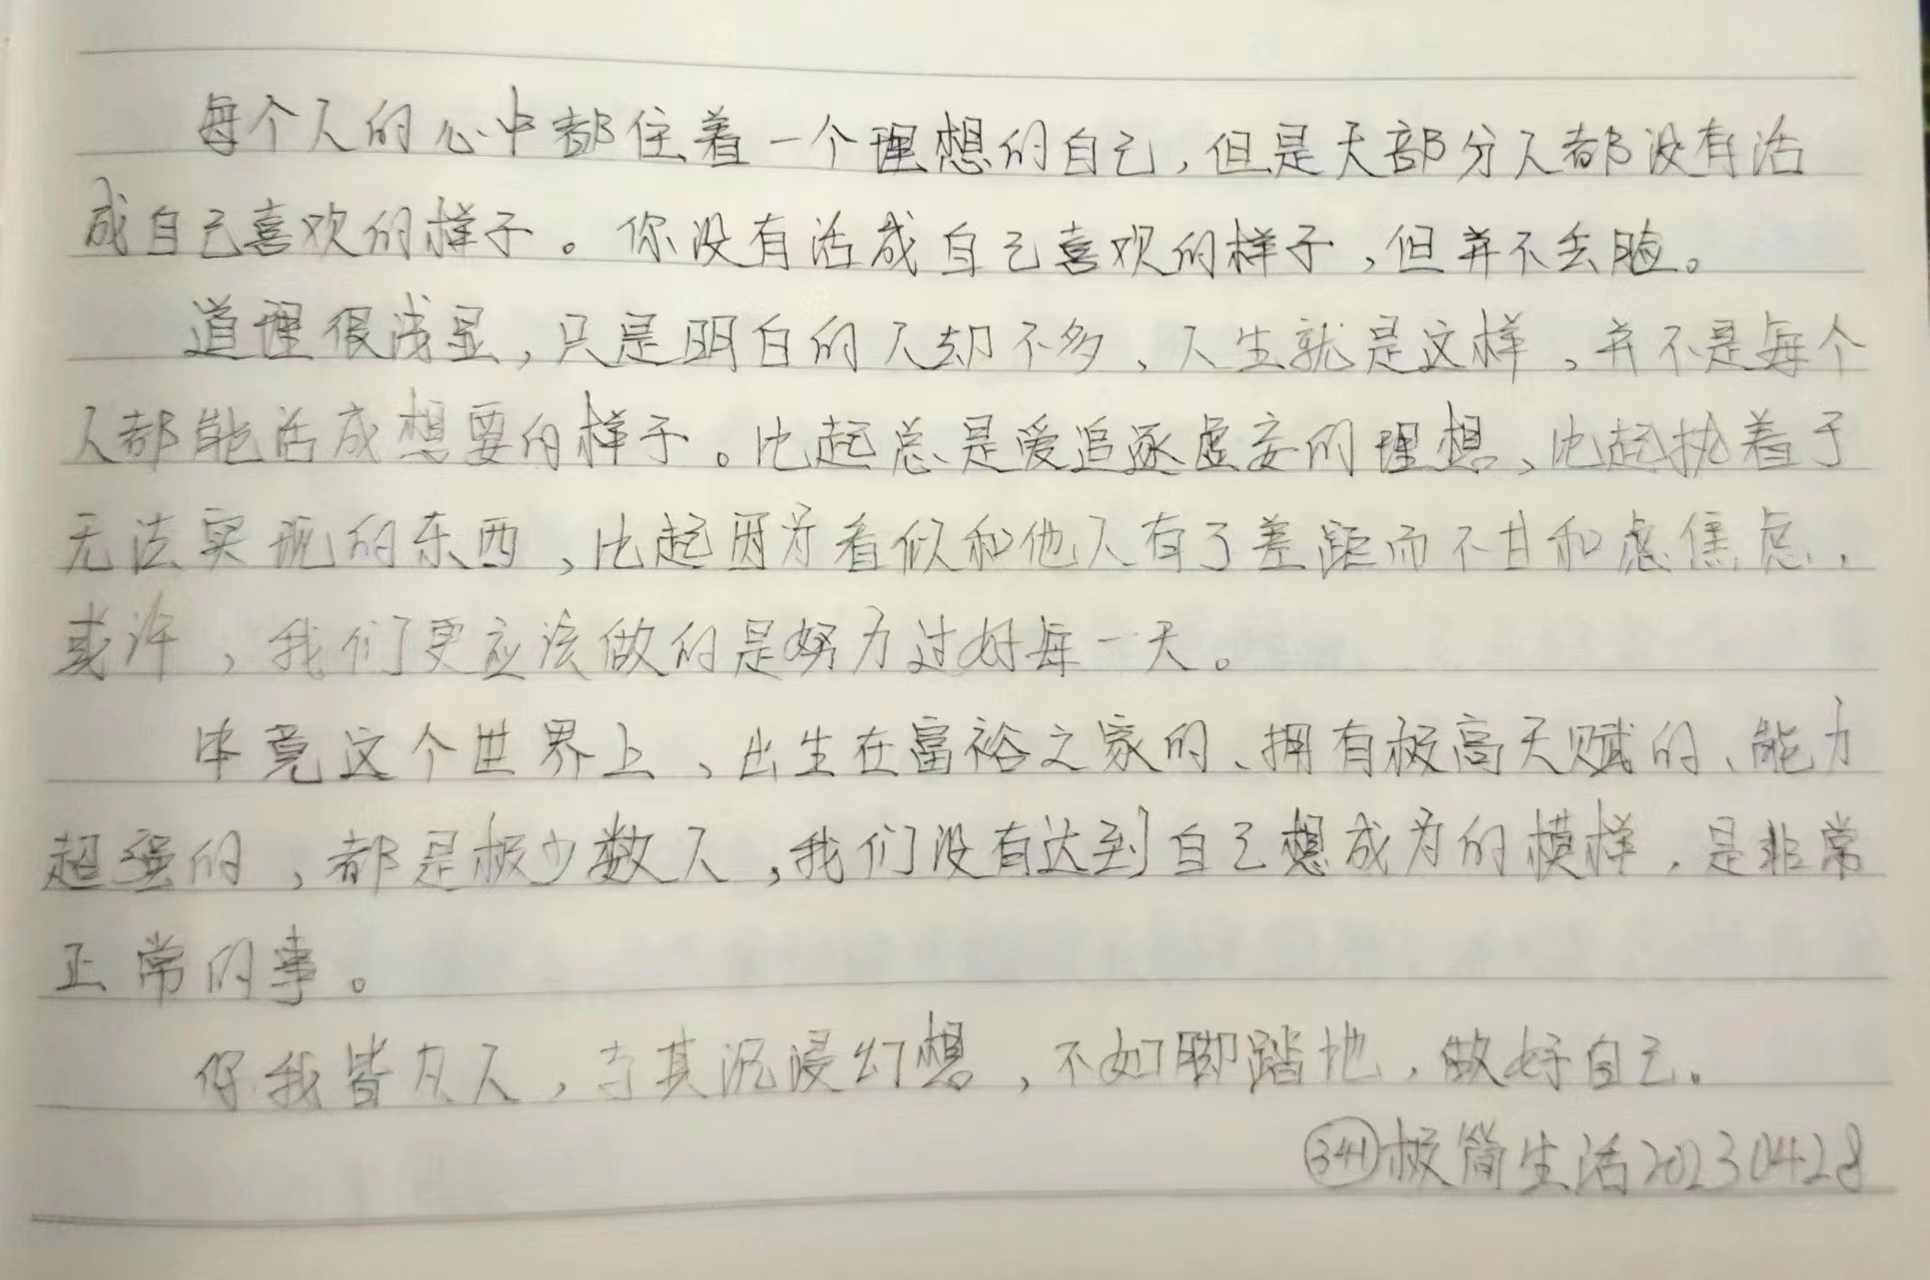 每个人的心中都住着一个理想的自己，但是大部分人都没有活
成自己喜欢的样子。你没有活成自己喜欢的样子，但并不丢脸。
道理很浅显，只是明白的人却不多、人生就是这样，并不是每个
人都能活成想要的样子。比起总是爱追逐虚妄的理想、比起执着于
无法实现的东西，比起因为看似和他人有了差距而不甘和焦虑，
或许，我们更应该做的是努力过好每一天。
毕竟这个世界上、出生在富裕之家的、拥有极高天赋的、能力
超强的，都是极少数人，我们没有达到自己想成为的模样，是非常
正常的事。
你我皆凡人，与其沉浸幻想，不如脚踏地，做好自己。
341极简生活20230428